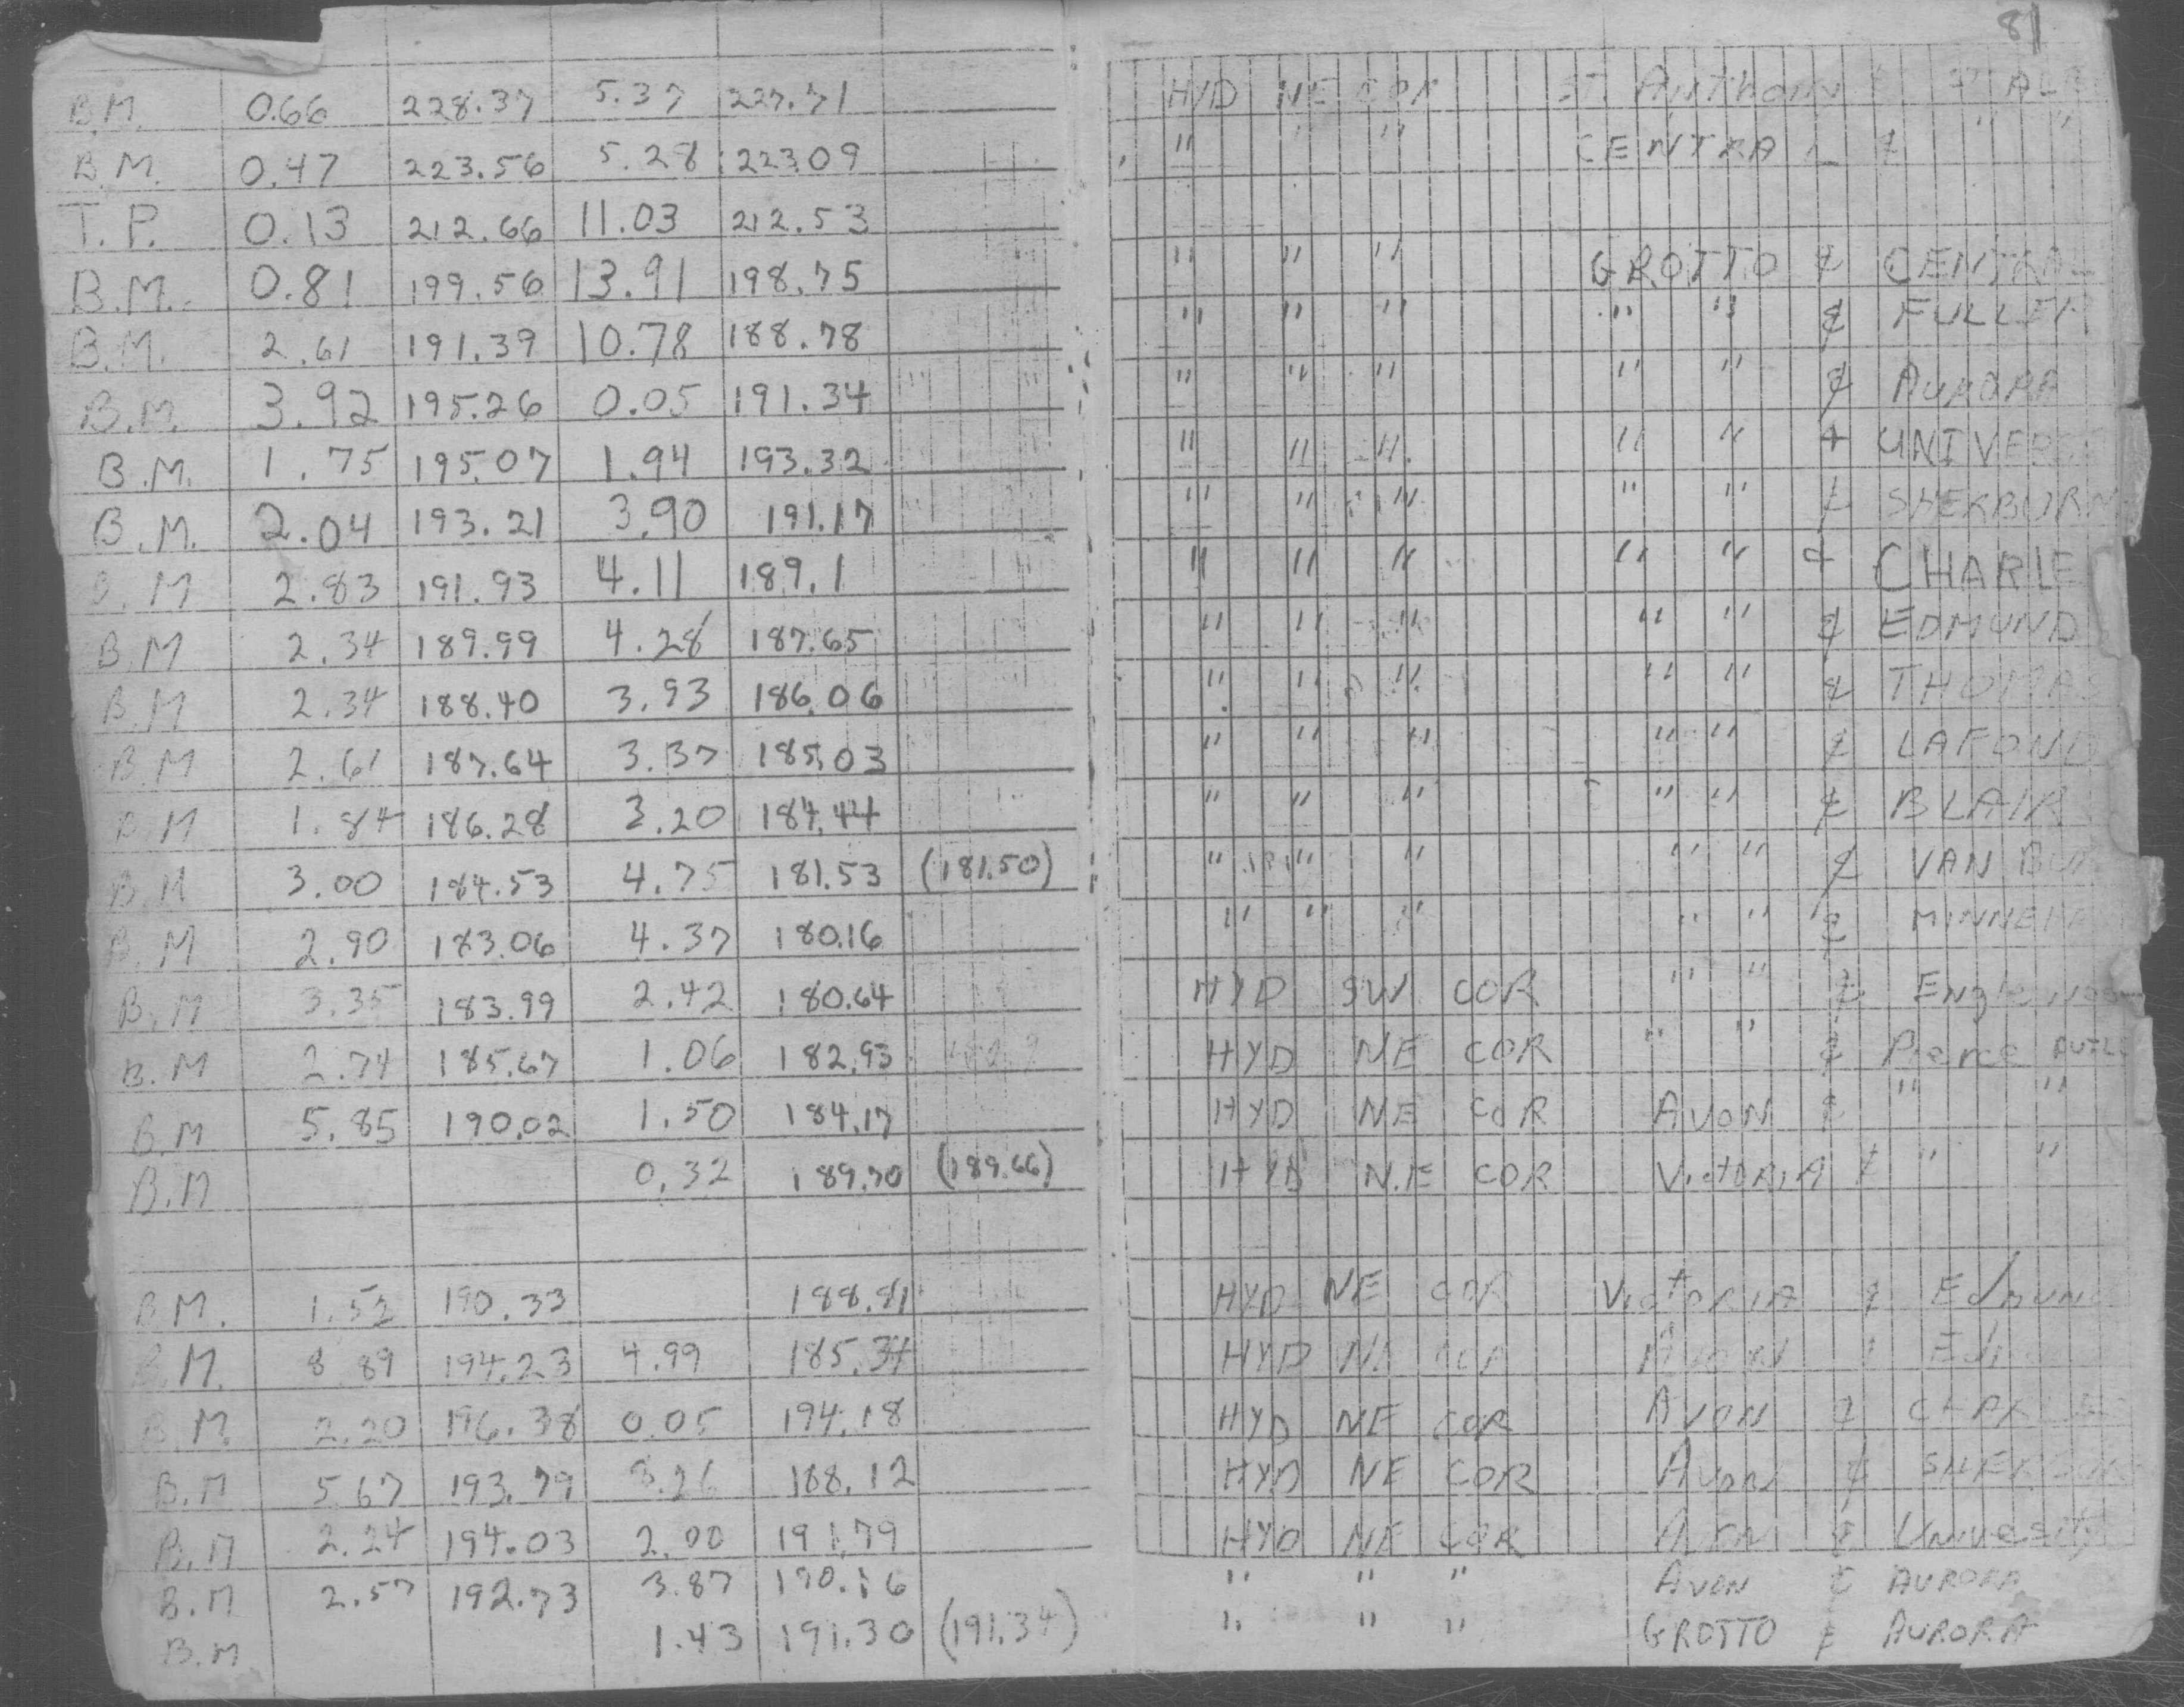 81
B.M. 0.66 228.37 5.37 227.71 HYD NE COR ST. Anthony
B.M. 0.47 223.56 5.28 223.09 " " " CENTRAL & " "
T.P. 0.13 212.66 11.03 212.53
B.M. 0.81 199.56 13.91 198.75 " " " GROTTO & CENTRAL
B.M. 2.61 191.39 10.78 188.78 " " " " " & FULLER
B.M. 3.92 195.26 0.05 191.34 " " " " " & AURORA
B.M. 1.75 195.07 1.94 193.32 " " " " " & UNIVERS
B.M. 2.04 193.21 3.90 191.17 " " " " " & SHERBURN
B.M 2.83 191.93 4.11 189.1 " " " " " & CHARLE
B.M 2.34 189.99 4.28 187.65 " " " " " & EDMUND
B.M 2.34 188.40 3.93 186.06 " " " " " & THOMAS
B.M 2.61 187.64 3.37 185.03 " " " " " & LAFOND
B.M 1.84 186.28 3.20 184.44 " " " " " & BLAIR
B.M 3.00 184.53 4.75 181.53 (181.50) " " " " " & VAN BUR
B.M 2.90 183.06 4.37 180.16 " " " " " & MINNEHA
B.M 3.35 183.99 2.42 180.64 HYD SW COR " " & Englewoo
B.M 2.74 185.67 1.06 182.93 HYD NE COR " " & Pierce BUTL
B.M 5.85 190.02 1.50 184.17 HYD NE COR AVON & " "
B.M 0.32 189.70 (189.66) HYD N.E COR VictORIA & " "
B.M. 1.52 190.33 188.81 HYD NE COR VictORIA & Edmund
B.M. 8.89 194.23 4.99 185.34 HYD NE COR AVON &
B.M. 2.20 196.38 0.05 194.18 HYD NE COR AVON &
B.M 5.67 193.79 3.26 188.12 HYD NE COR AVON & SHERBURN
B.M 2.24 194.03 2.00 191.79 HYD NE COR AVON & University
B.M 2.57 192.73 3.87 190.16 " " " AVON & AURORA
B.M 1.43 191.30 (191.34) " " " GROTTO & AURORA